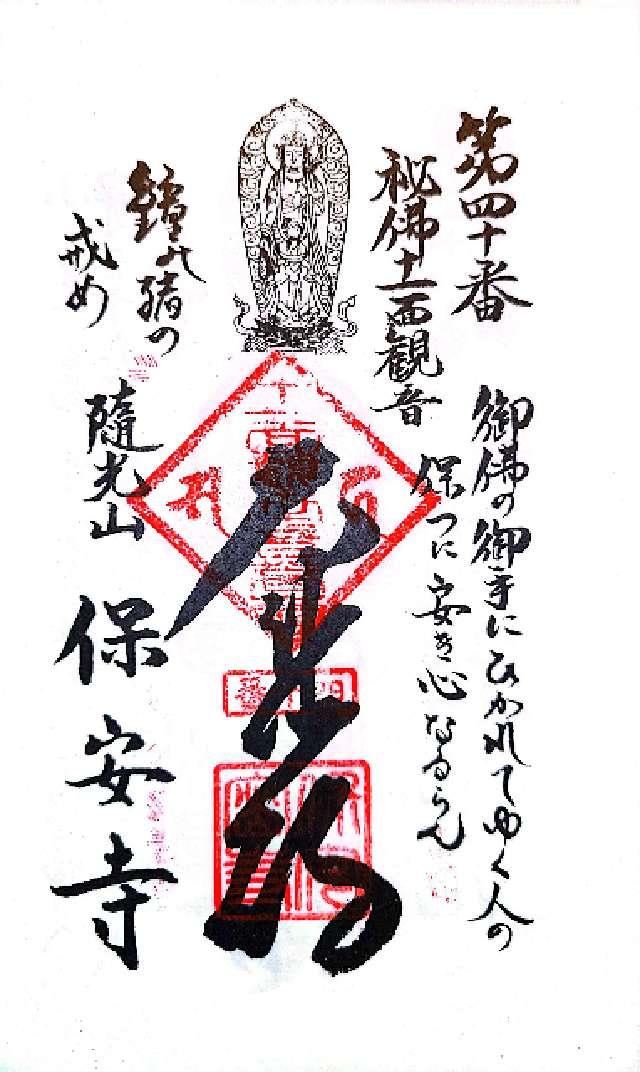 第四十番
秘佛十一面観音
御佛の御手にひかれてゆく人の
保つに安き心なるらん
四十番
鐘乃緒の
戒め
隨光山
保安寺